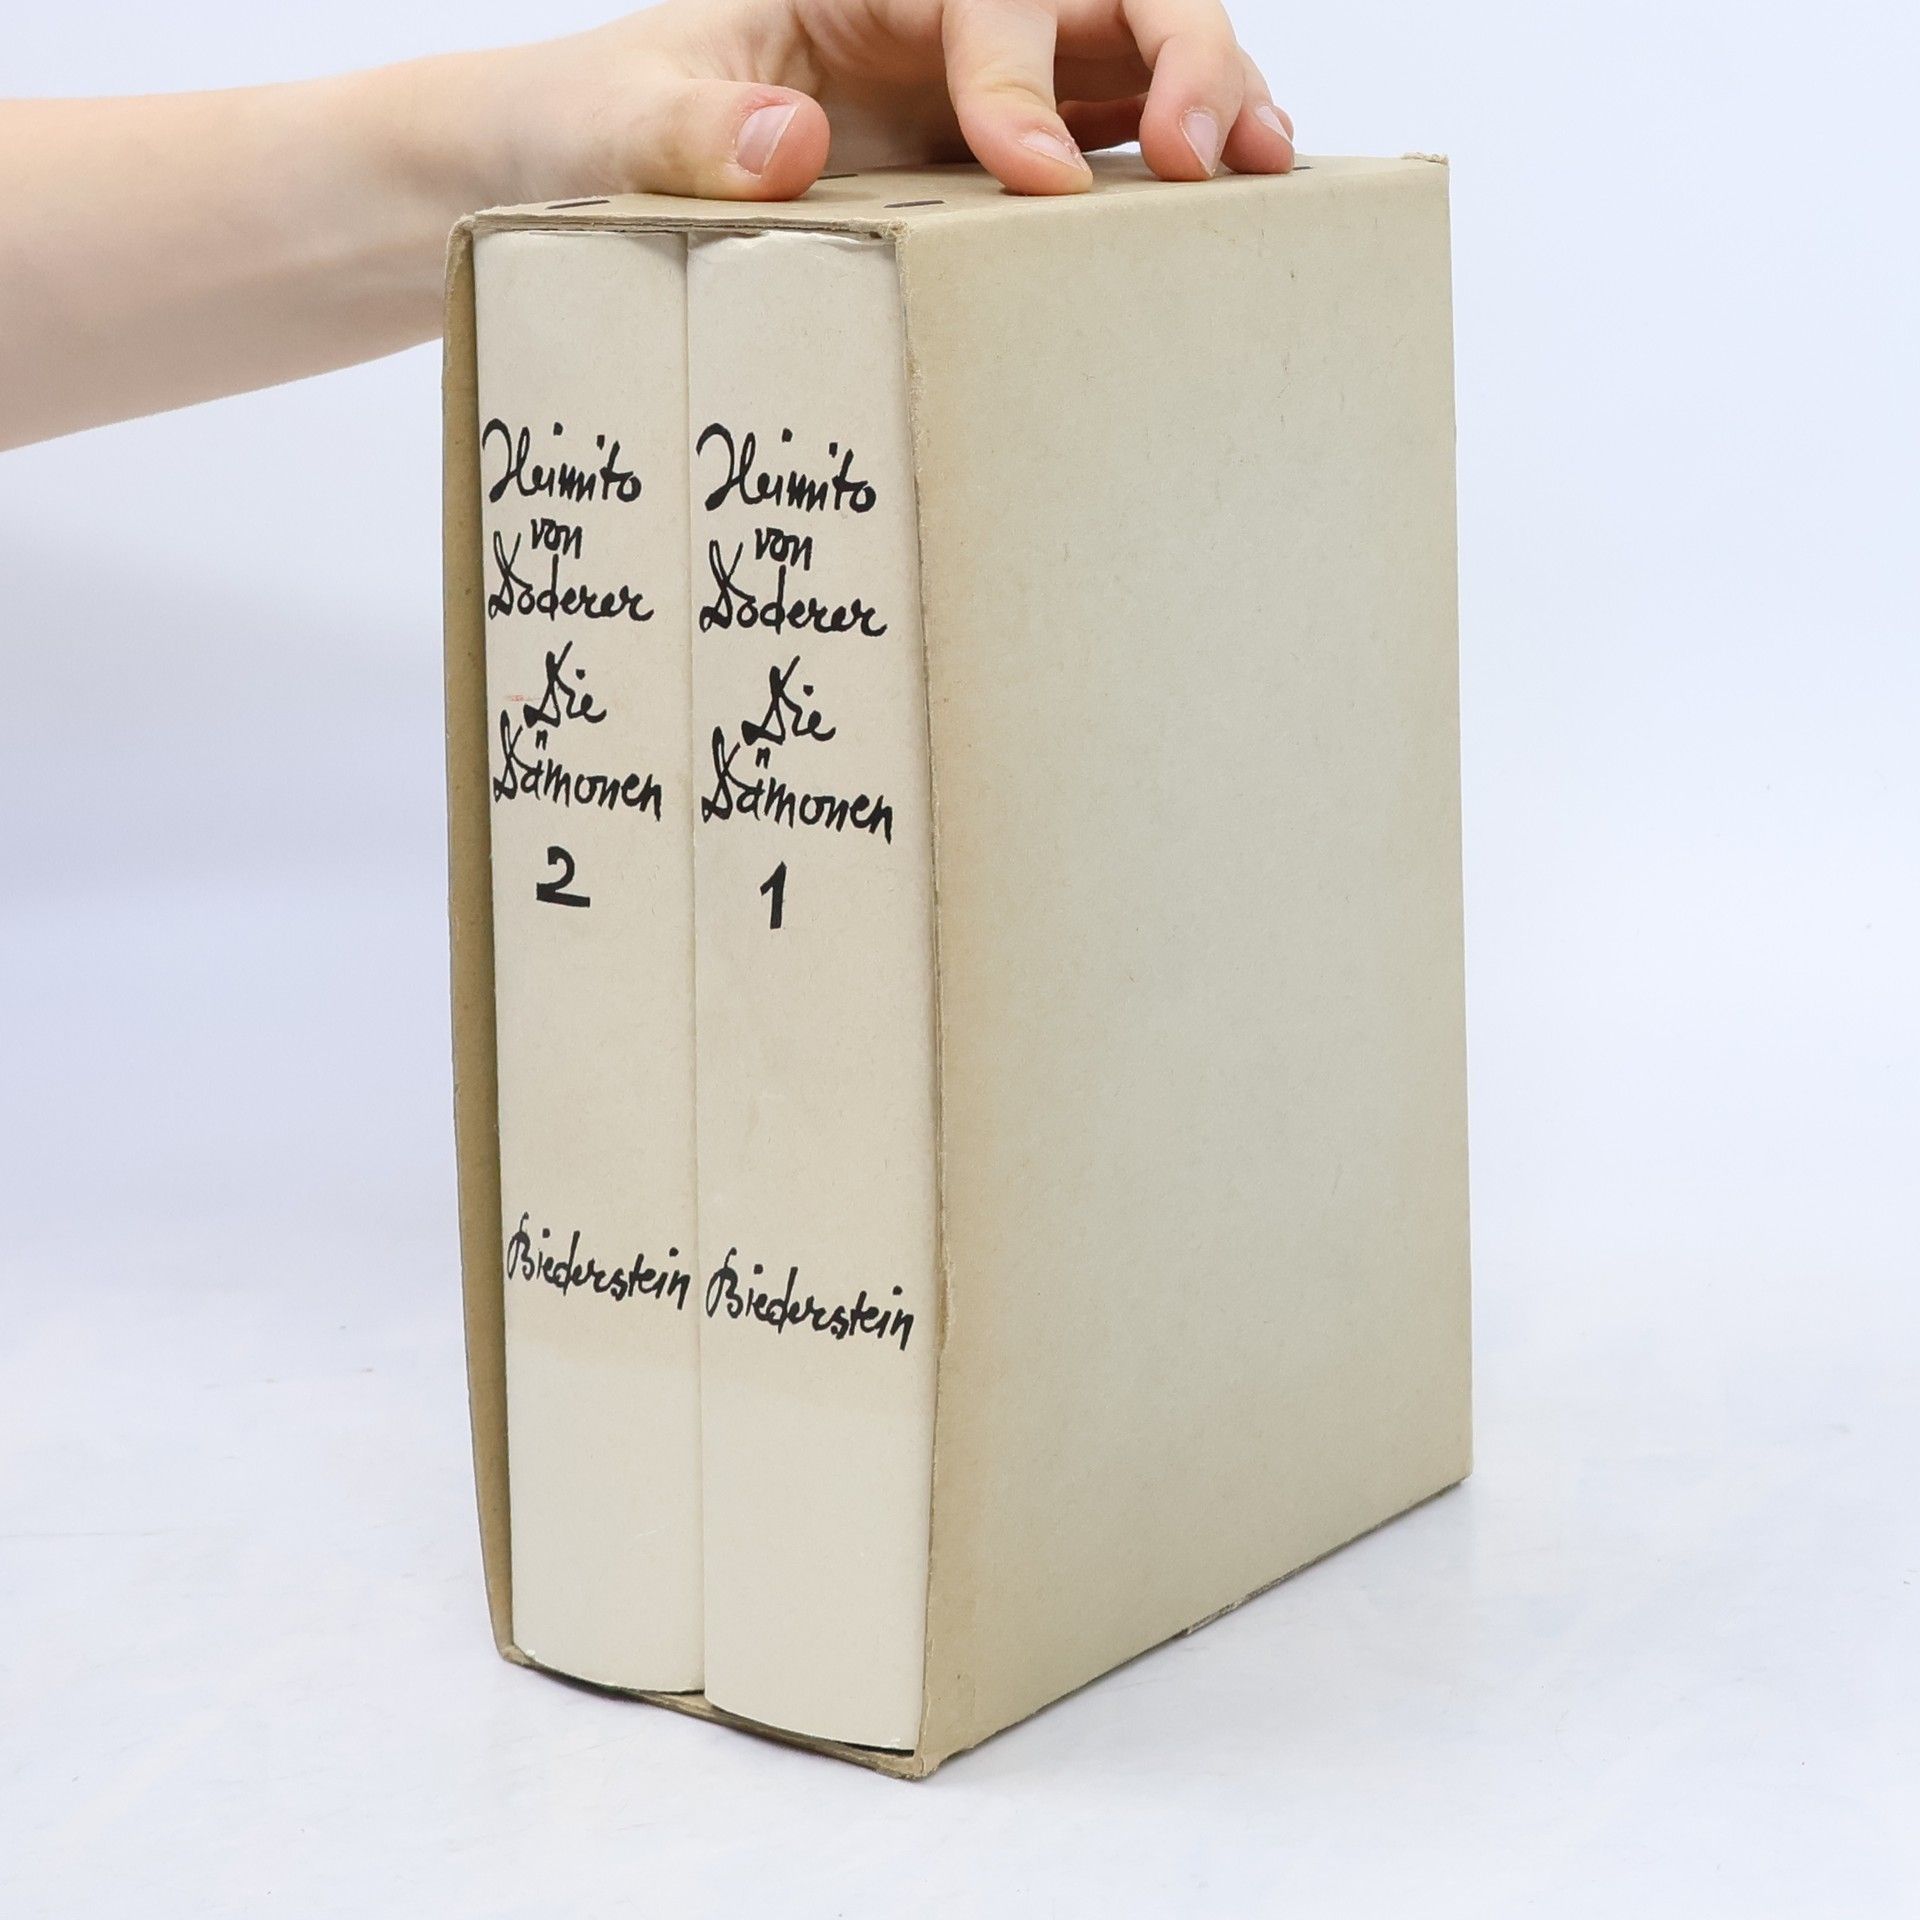 Heimito
von
Doderer
Die
Dämonen
2
Biederstein
Heimito
von
Doderer
Die
Dämonen
1
Biederstein